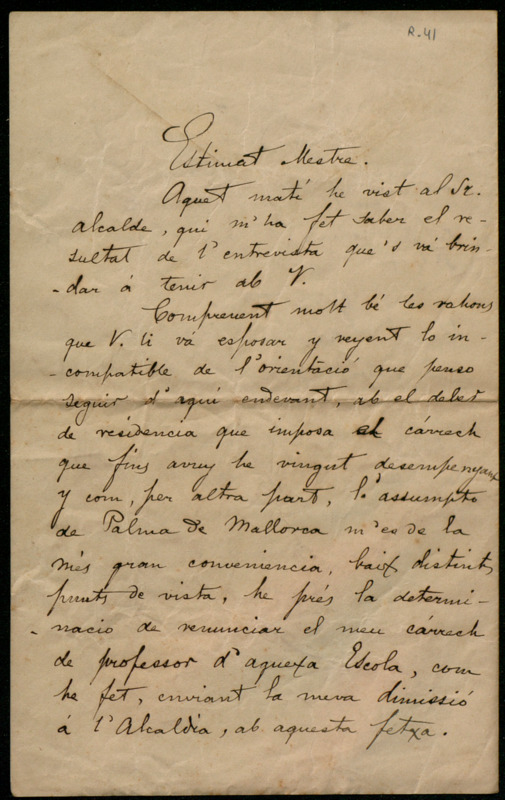 R-41
Estimat Mestre.
Aquet matí he vist al Sr.
alcalde, qui m'ha fet saber el re-
sultat de l'entrevista que's vá brin-
-dar á tenir ab V.
Comprenent molt bé les rahons
que V. li vá esposar y veyent lo in-
-compatible de l'orientació que penso
seguir d'aquí endevant, ab el deber
de residencia que imposa el cárrech
que fins avuy he vingut desempenyant
y com, per altra part, l'assumpto
de Palma de Mallorca m'es de la
més gran conveniencia, baix distints
punts de vista, he prés la determi-
-nacio de renunciar el meu cárrech
de professor d'aquexa Escola, com
he fet, enviant la meva dimissió
á l'Alcaldía, ab aquesta fetxa.